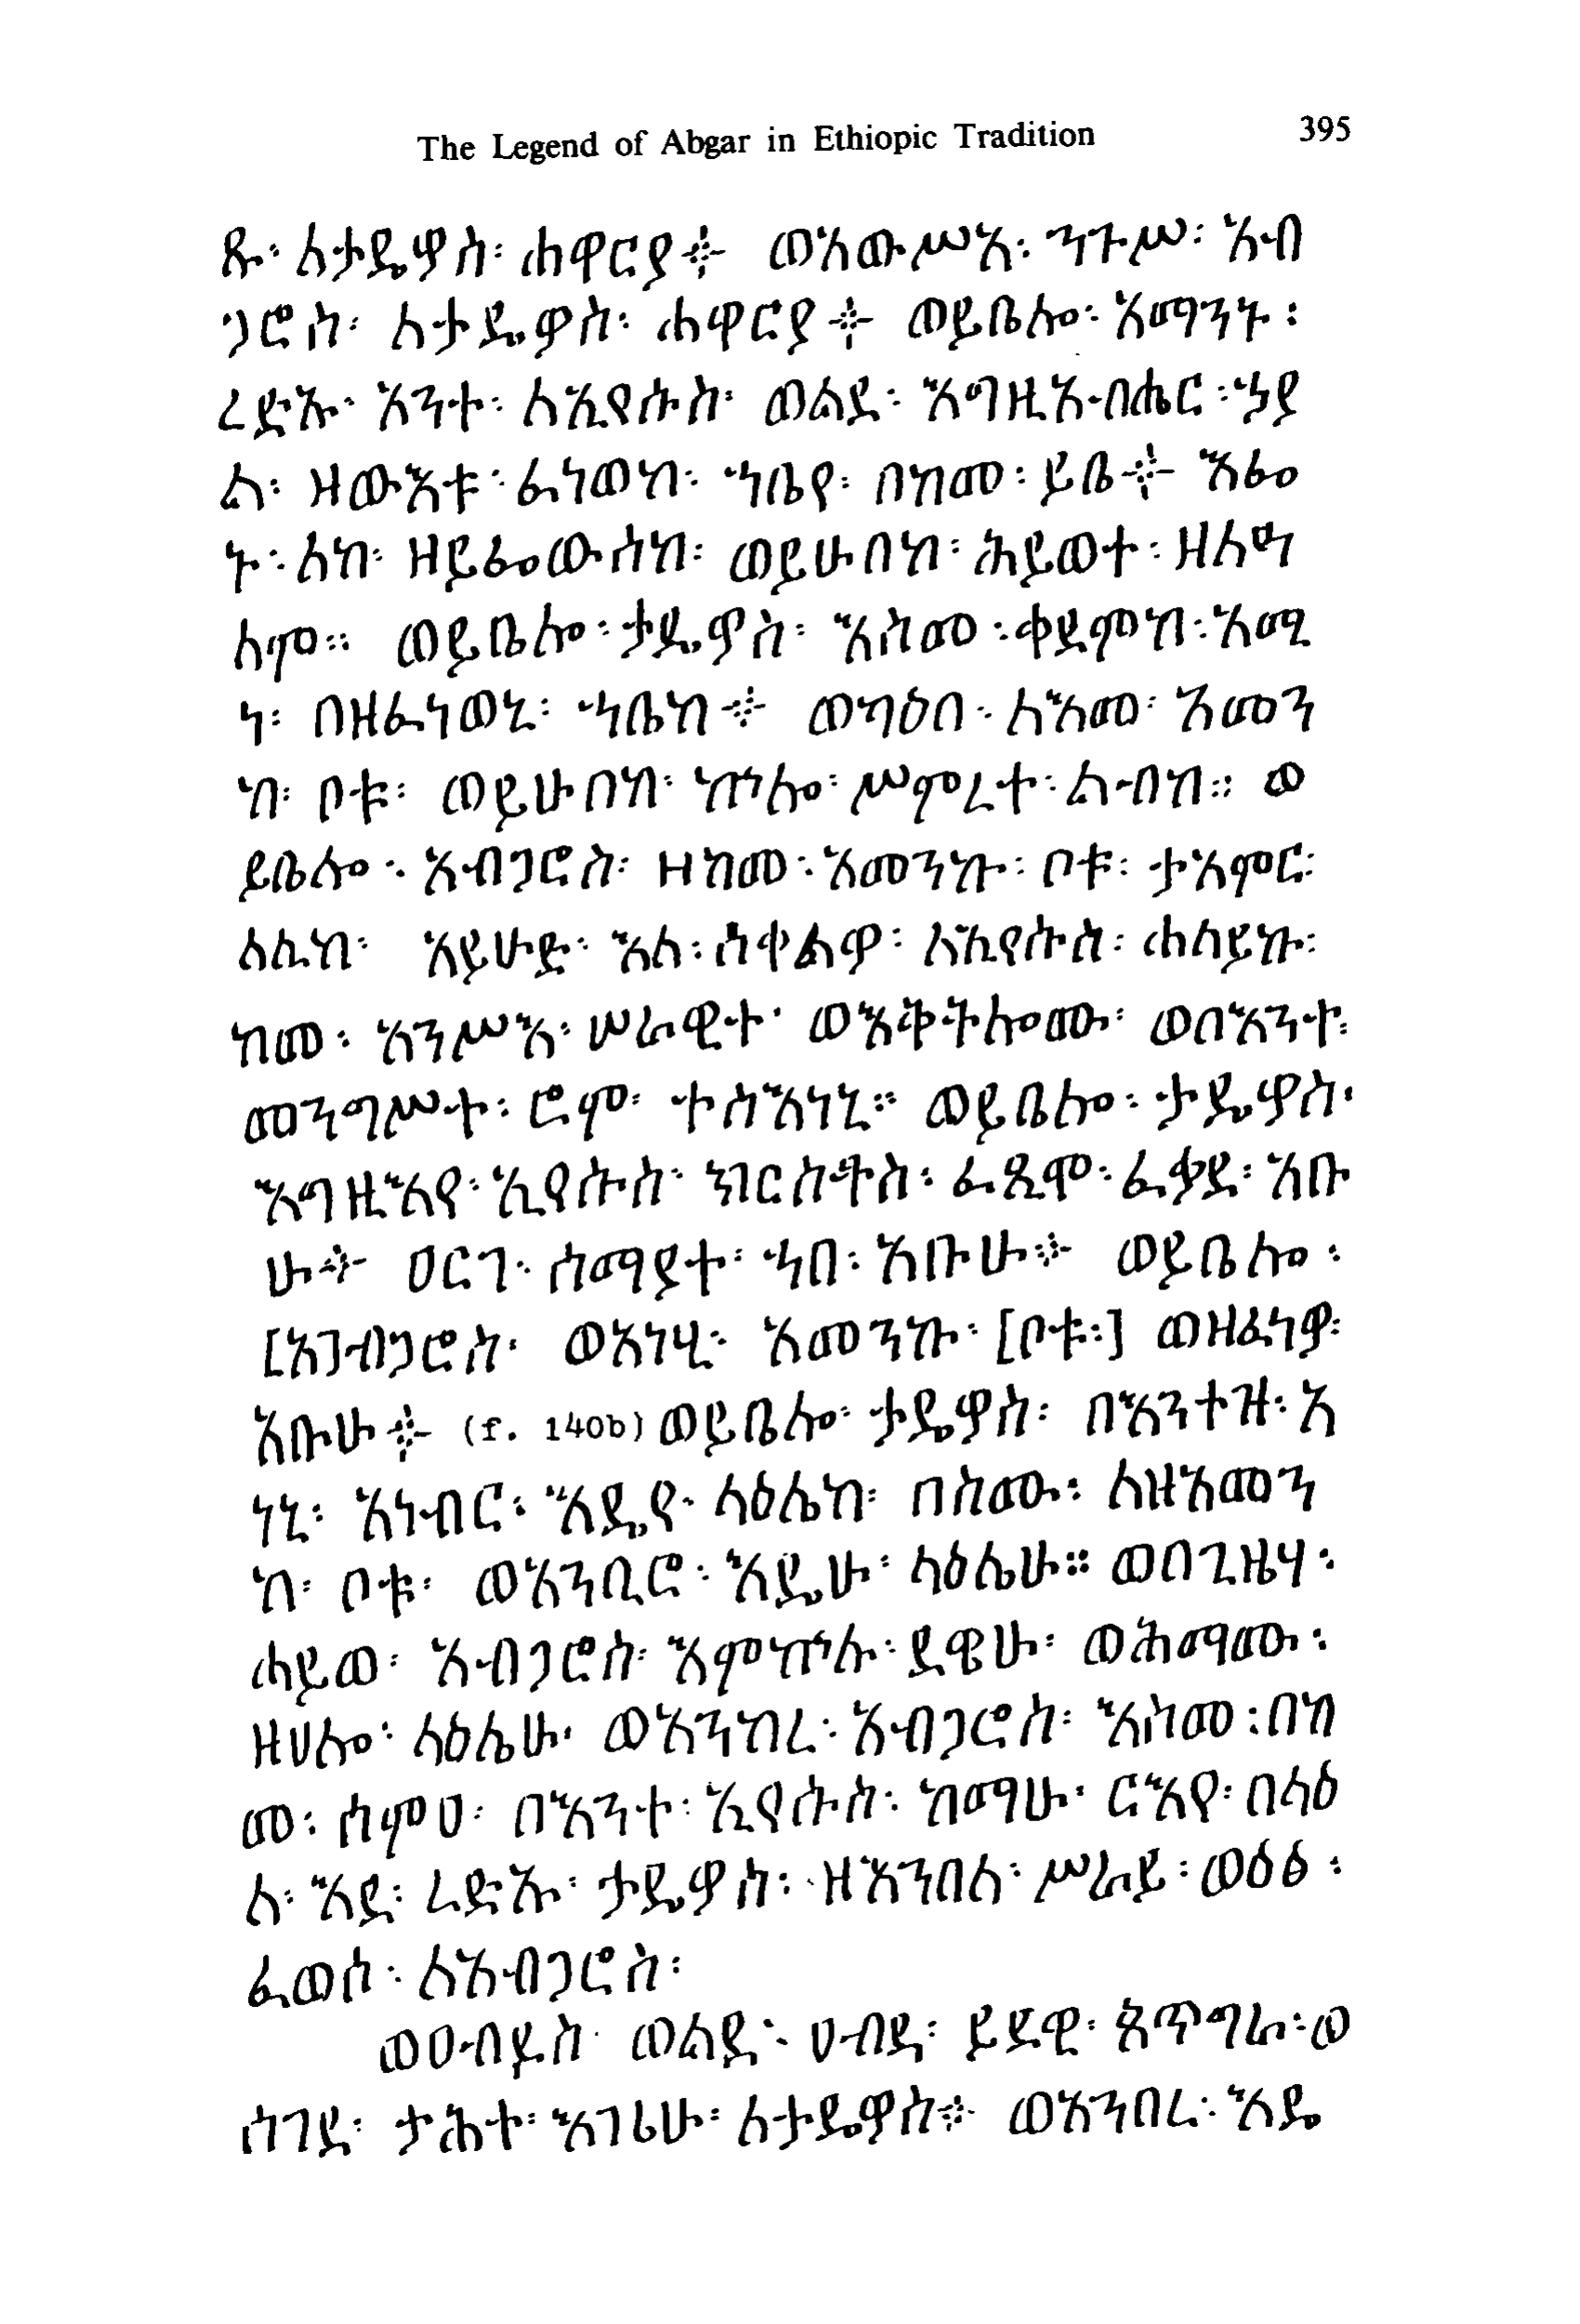 The Legend of Abgar in Ethiopic Tradition 395
ጹ፡ ለታዴዎስ፡ ሐዋርያ፨ ወአውሥአ፡ ንጉሥ፡ አብ
ጋሮስ፡ ለታዴዎስ፡ ሐዋርያ፨ ወይቤሎ፡ አማንኑ፡
ረድኡ፡ አንተ፡ ለኢየሱስ፡ ወልደ፡ እግዚአብሔር፡ ኃያ
ል፡ ዘውእቱ፡ ፈነወከ፡ ኀቤየ፡ በከመ፡ ይቤ፨ እፌ
ኑ፡ ለከ፡ ዘይፌውሰከ፡ ወይሁበከ፡ ሕይወተ፡ ዘለዓ
ለም። ወይቤሎ፡ ታዴዎስ፡ እስመ፡ ቀደምከ፡ አሚ
ነ፡ በዘፈነወኒ፡ ኀቤከ፨ ወካዕበ፡ ለእመ፡ አመን
ከ፡ ቦቱ፡ ወይሁበከ፡ ኵሎ፡ ሥምረተ፡ ልብከ። ወ
ይቤሎ፡ አብጋሮስ፡ ዘከመ፡ አመንኩ፡ ቦቱ፡ ታአምር፡
ለሊከ፡ አይሁድ፡ እለ፡ ሰቀልዎ፡ ለኢየሱስ፡ ሐለይኩ፡
ከመ፡ አንሥእ፡ ሠራዊተ፡ ወእቅትሎሙ፡ ወበእንተ፡
መንግሥተ፡ ሮም፡ ተስእነኒ። ወይቤሎ፡ ታዴዎስ፡
እግዚእየ፡ ኢየሱስ፡ ክርስቶስ፡ ፈጺሞ፡ ፈቃደ፡ አቡ
ሁ፨ ዐርገ፡ ሰማያተ፡ ኀበ፡ አቡሁ፨ ወይቤሎ፡
[አ]ብጋሮስ፡ ወአነሂ፡ አመንኩ፡ [ቦቱ፡] ወዘፈነዎ፡
አቡሁ፨ (f. 140b) ወይቤሎ፡ ታዴዎስ፡ በእንተዝ፡ አ
ነኒ፡ አነብር፡ እዴየ፡ ላዕሌከ፡ በስሙ፡ ለዘአመን
ከ፡ ቦቱ፡ ወአንቢሮ፡ እዴሁ፡ ላዕሌሁ። ወበጊዜሃ፡
ሐይወ፡ አብጋሮስ፡ እምኵሉ፡ ደዌሁ፡ ወሕማሙ፡
ዘሀሎ፡ ላዕሌሁ፡ ወአንከረ፡ አብጋሮስ፡ እስመ፡ በከ
መ፡ ሰምዐ፡ በእንተ፡ ኢየሱስ፡ ከማሁ፡ ርእየ፡ በላዕ
ለ፡ እደ፡ ረድኡ፡ ታዴዎስ፡ ዘእንበለ፡ ሥራይ፡ ወዕፅ፡
ፈወሰ፡ ለአብጋሮስ፡
ወዐብዩስ፡ ወልደ፡ ሀብዳ፡ ይደዊ፡ ጸጥግራ፡ ወ
ሰገደ፡ ታሕተ፡ እገሪሁ፡ ለታዴዎስ፨ ወአንበረ፡ እዴ